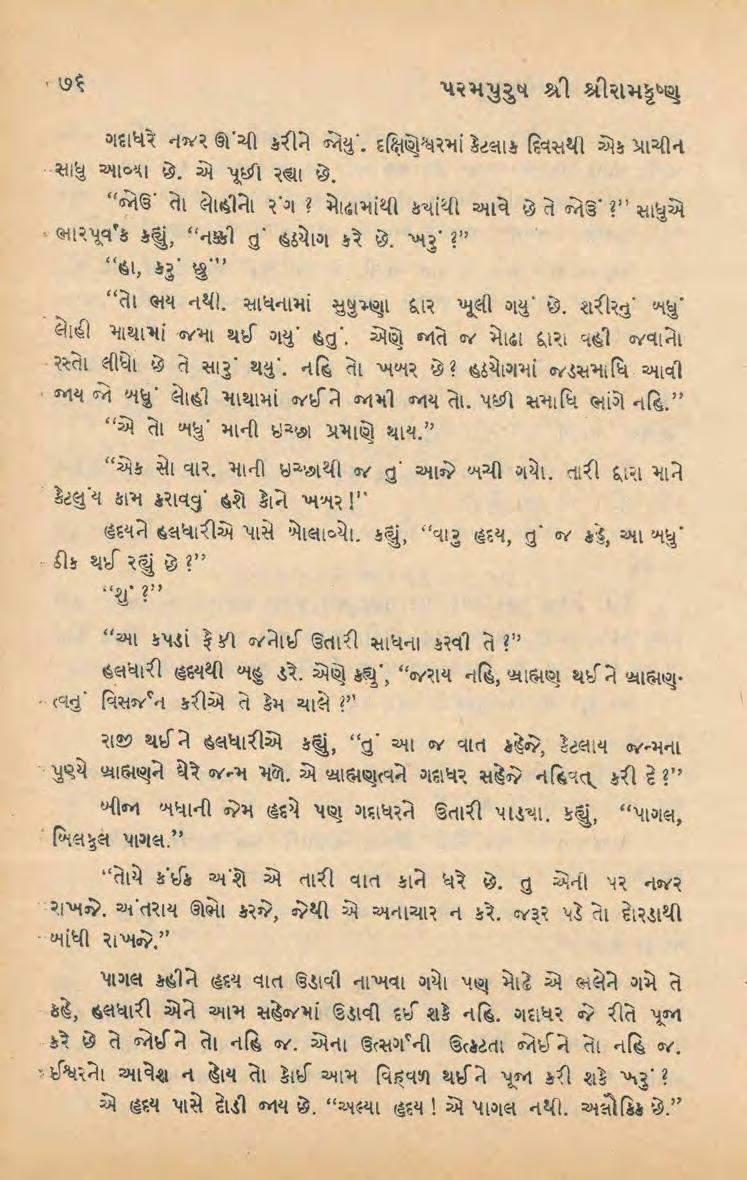 ૭૬
પરમપુરુષ શ્રી શ્રીરામકૃષ્ણ
ગદાધરે નજર ઊંચી કરીને જોયું. દક્ષિણેશ્વરમાં કેટલાક દિવસથી એક પ્રાચીન
સાધુ આવ્યા છે. એ પૂછી રહ્યા છે.
“જોઉં તો લોહીનો રંગ ? મોઢામાંથી કયાંથી આવે છે તે જોઉં ?” સાધુએ
ભારપૂર્વક કહ્યું, “નક્કી તું હઠયોગ કરે છે. ખરું ?”
“હા, કરું છું”
“તો ભય નથી. સાધનામાં સુષુમ્ણા દ્વાર ખૂલી ગયું છે. શરીરનું બધું
લોહી માથામાં જમા થઈ ગયું હતું. એણે જાતે જ મોઢા દ્વારા વહી જવાનો
રસ્તો લીધો છે તે સારું થયું. નહિ તો ખબર છે? હઠયોગમાં જડસમાધિ આવી
જાય જો બધું લોહી માથામાં જઈને જામી જાય તો. પછી સમાધિ ભાંગે નહિ.”
“એ તો બધું માની ઇચ્છા પ્રમાણે થાય.”
“એક સો વાર. માની ઇચ્છાથી જ તું આજે બચી ગયો. તારી દ્વારા માને
કેટલુંય કામ કરાવવું હશે કોને ખબર !”
હૃદયને હલધારીએ પાસે બોલાવ્યો. કહ્યું, “વારુ હૃદય, તું જ કહે, આ બધું
ઠીક થઈ રહ્યું છે ?”
“શું ?”
“આ કપડાં ફેંકી જનોઈ ઉતારી સાધના કરવી તે ?”
હલધારી હૃદયથી બહુ ડરે. એણે કહ્યું, “જરાય નહિ, બ્રાહ્મણ થઈને બ્રાહ્મણ-
ત્વનું વિસર્જન કરીએ તે કેમ ચાલે ?”
રાજી થઈને હલધારીએ કહ્યું, “તું આ જ વાત કહેજે, કેટલાય જન્મના
પુણ્યે બ્રાહ્મણને ઘેરે જન્મ મળે. એ બ્રાહ્મણત્વને ગદાધર સહેજે નહિવત્ કરી દે ?”
બીજા બધાની જેમ હૃદયે પણ ગદાધરને ઉતારી પાડયા. કહ્યું, “પાગલ,
બિલકુલ પાગલ.”
“તોયે કંઈક અંશે એ તારી વાત કાને ધરે છે. તુ એની પર નજર
રાખજે. અંતરાય ઊભો કરજે, જેથી એ અનાચાર ન કરે. જરૂર પડે તો દોરડાથી
બાંધી રાખજે.”
પાગલ કહીને હૃદય વાત ઉડાવી નાખવા ગયો પણ મોઢે એ ભલેને ગમે તે
કહે, હલધારી એને આમ સહેજમાં ઉડાવી દઈ શકે નહિ. ગદાધર જે રીતે પૂજા
કરે છે તે જોઈને તો નહિ જ. એના ઉત્સર્ગની ઉત્કટતા જોઈને તો નહિ જ.
ઈશ્વરનો આવેશ ન હોય તો કોઈ આમ વિહ્વળ થઈને પૂજા કરી શકે ખરું ?
એ હૃદય પાસે દોડી જાય છે. “અલ્યા હૃદય ! એ પાગલ નથી. અલૌકિક છે.”